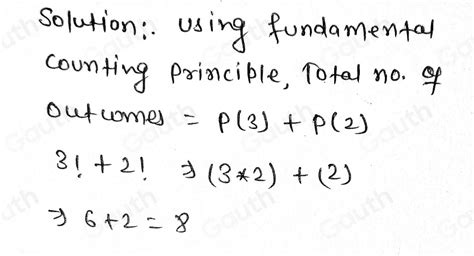 Solution:. using fundamental
Counting Principle, Total no. of
outcomes = P(3) + P(2)
3! + 2! ⇒ (3*2) + (2)
⇒ 6+2 = 8
Gauth